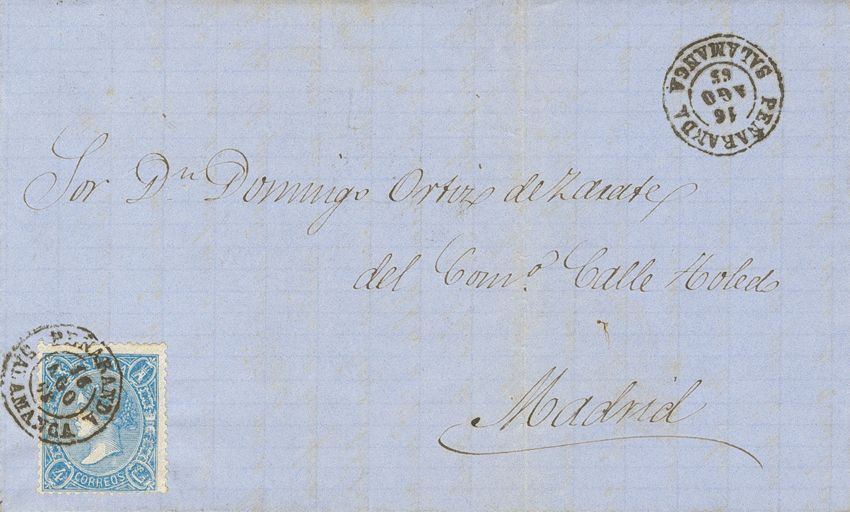 PEÑARANDA
16
AGO
65
SALAMANCA
Sor Dn Domingo Ortiz de Zarate
del Como. Calle Toledo
Madrid
PEÑARANDA
16
AGO
SALAMANCA
4
CORREOS